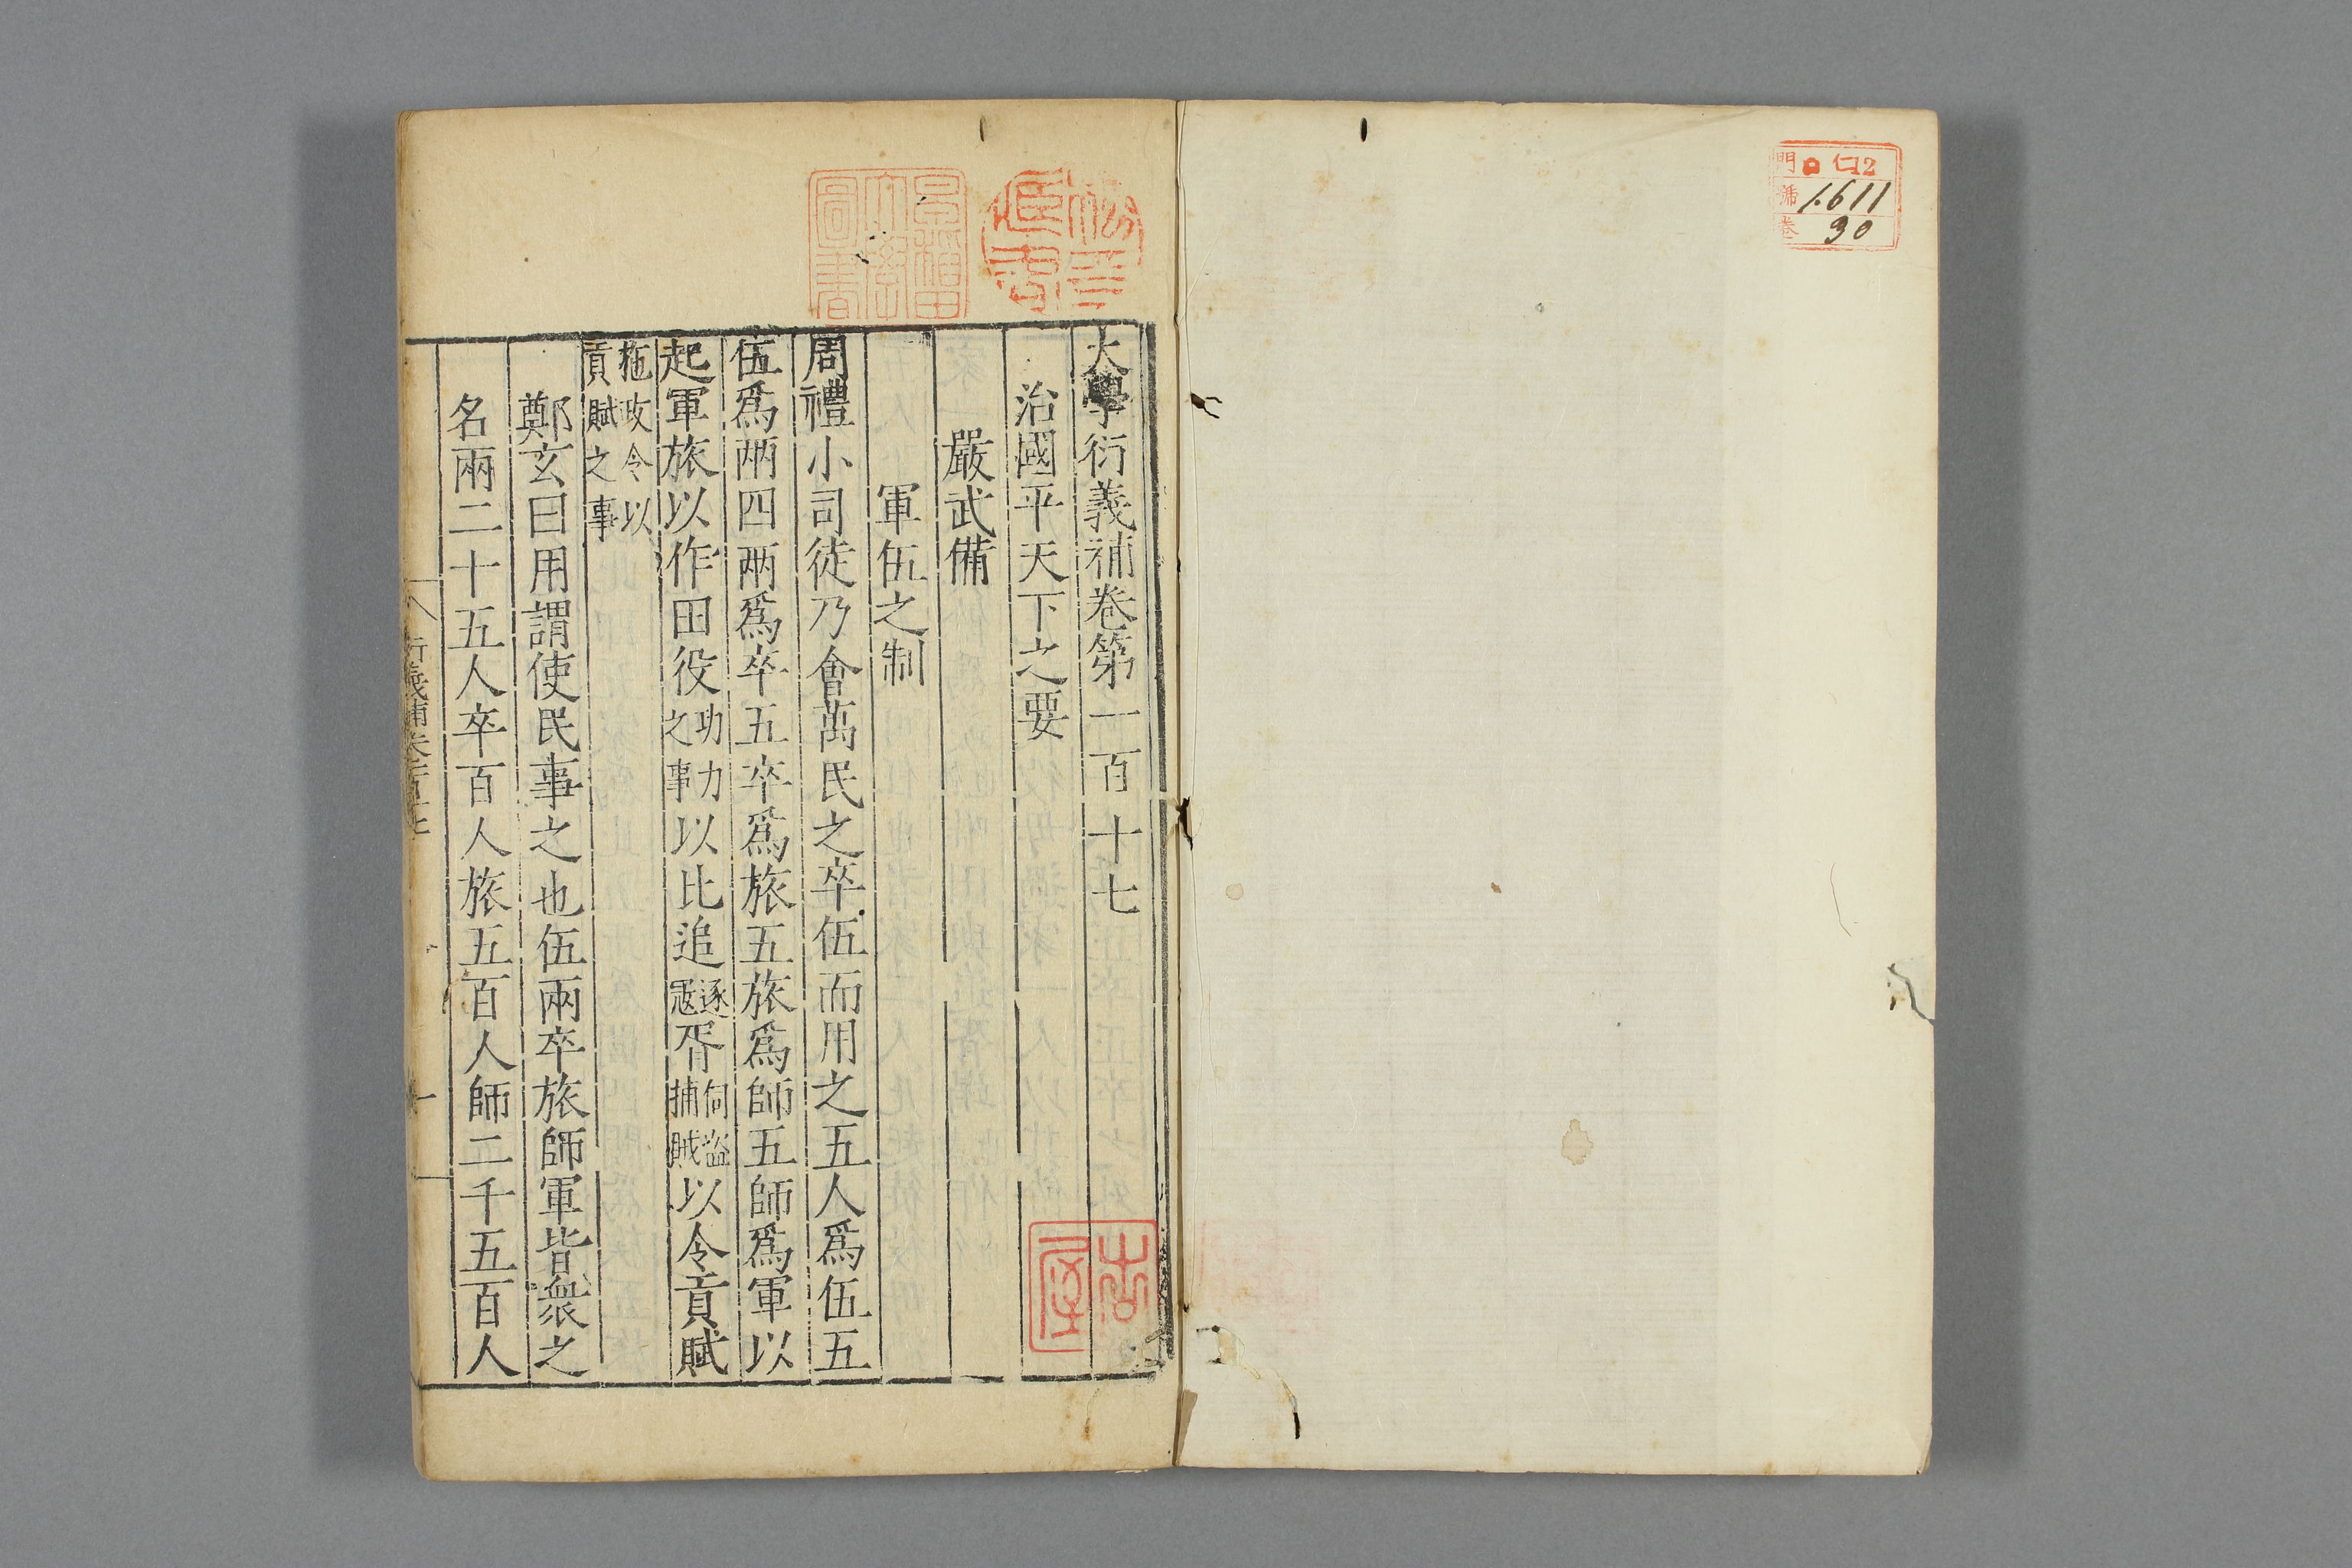 門 口 12
號 1611
卷 30
大學衍義補卷第一百十七
治國平天下之要
嚴武備
軍伍之制
周禮小司徒乃會萬民之卒伍而用之五人爲伍五
伍爲兩四兩爲卒五卒爲旅五旅爲師五師爲軍以
起軍旅以作田役功力之事以比追逐寇胥伺盜捕賊以令貢賦
施政令以貢賦之事
鄭玄曰用謂使民事之也伍兩卒旅師軍皆衆之
名兩二十五人卒百人旅五百人師二千五百人
早稻田大學圖書